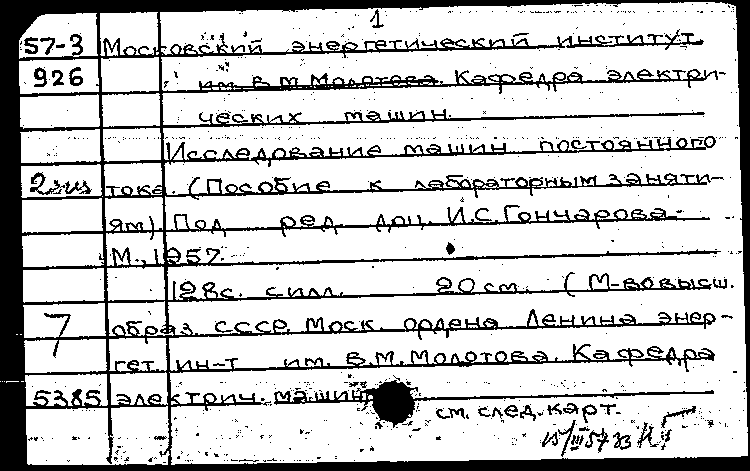 1
57-3 Московский энергетический институт
926 им. В.М.Молотова. Кафедра электри-
ческих машин.
Исследование машин постоянного
2 экз тока. (Пособие к лабораторным заняти-
ям). Под ред. доц. И.С.Гончарова.
М., 1957.
128с. с илл. 20 см. (М-во высш.
7 образ. СССР. Моск. ордена Ленина энер-
гет. ин-т им. В.М.Молотова. Кафедра
5385 электрич. машин
см. след. карт.
15/III 57 г.